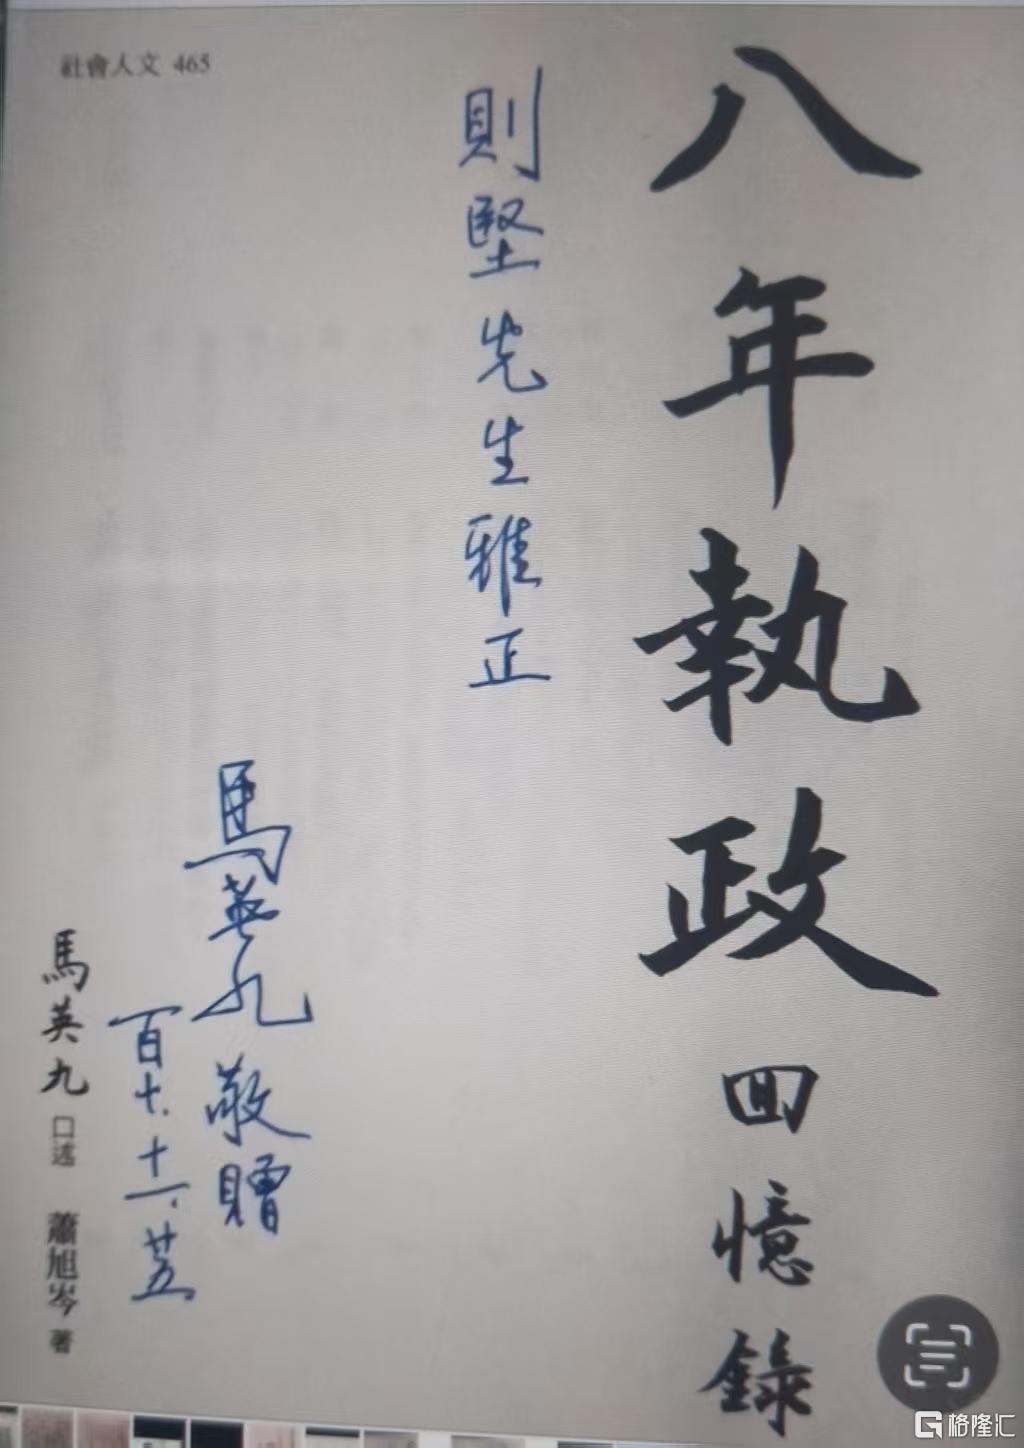 社會人文 465
八年執政回憶錄
則堅先生雅正
馬英九敬贈
百十.十一.廿五
馬英九 口述 蕭旭岑 著
格隆汇